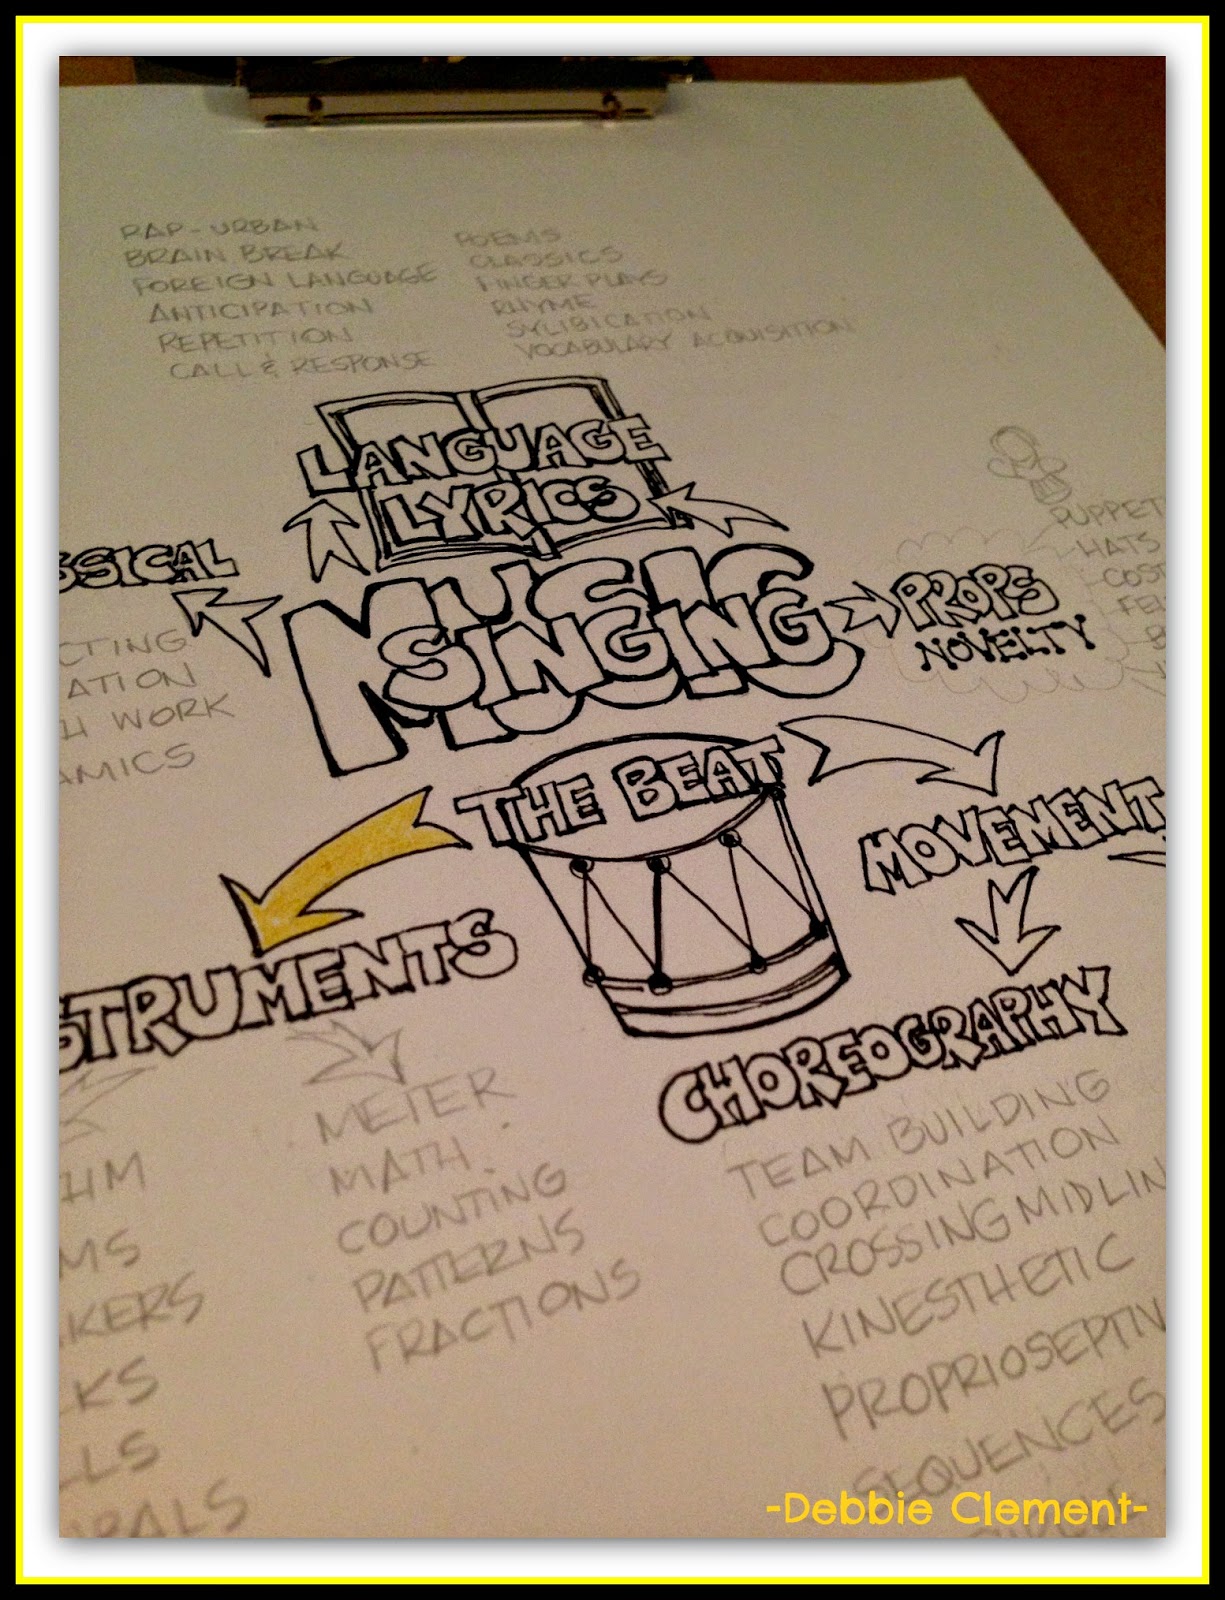 RAP-URBAN
BRAIN BREAK
FOREIGN LANGUAGE
ANTICIPATION
REPETITION
CALL & RESPONSE
POEMS
CLASSICS
FINGER PLAYS
RHYME
SYLIBICATION
VOCABULARY ACQUISITION
LANGUAGE
LYRICS
SSICAL
CTING
ATION
H WORK
AMICS
MUSIC
SINGING
PROPS
NOVELTY
PUPPET
HATS
COST
FEL
B
THE BEAT
MOVEMENT
STRUMENTS
CHOREOGRAPHY
METER
MATH
COUNTING
PATTERNS
FRACTIONS
HM
MS
AKERS
CKS
LLS
RALS
TEAM BUILDING
COORDINATION
CROSSING MIDLIN
KINESTHETIC
PROPRIOSEPTIV
SEQUENCES
-Debbie Clement-